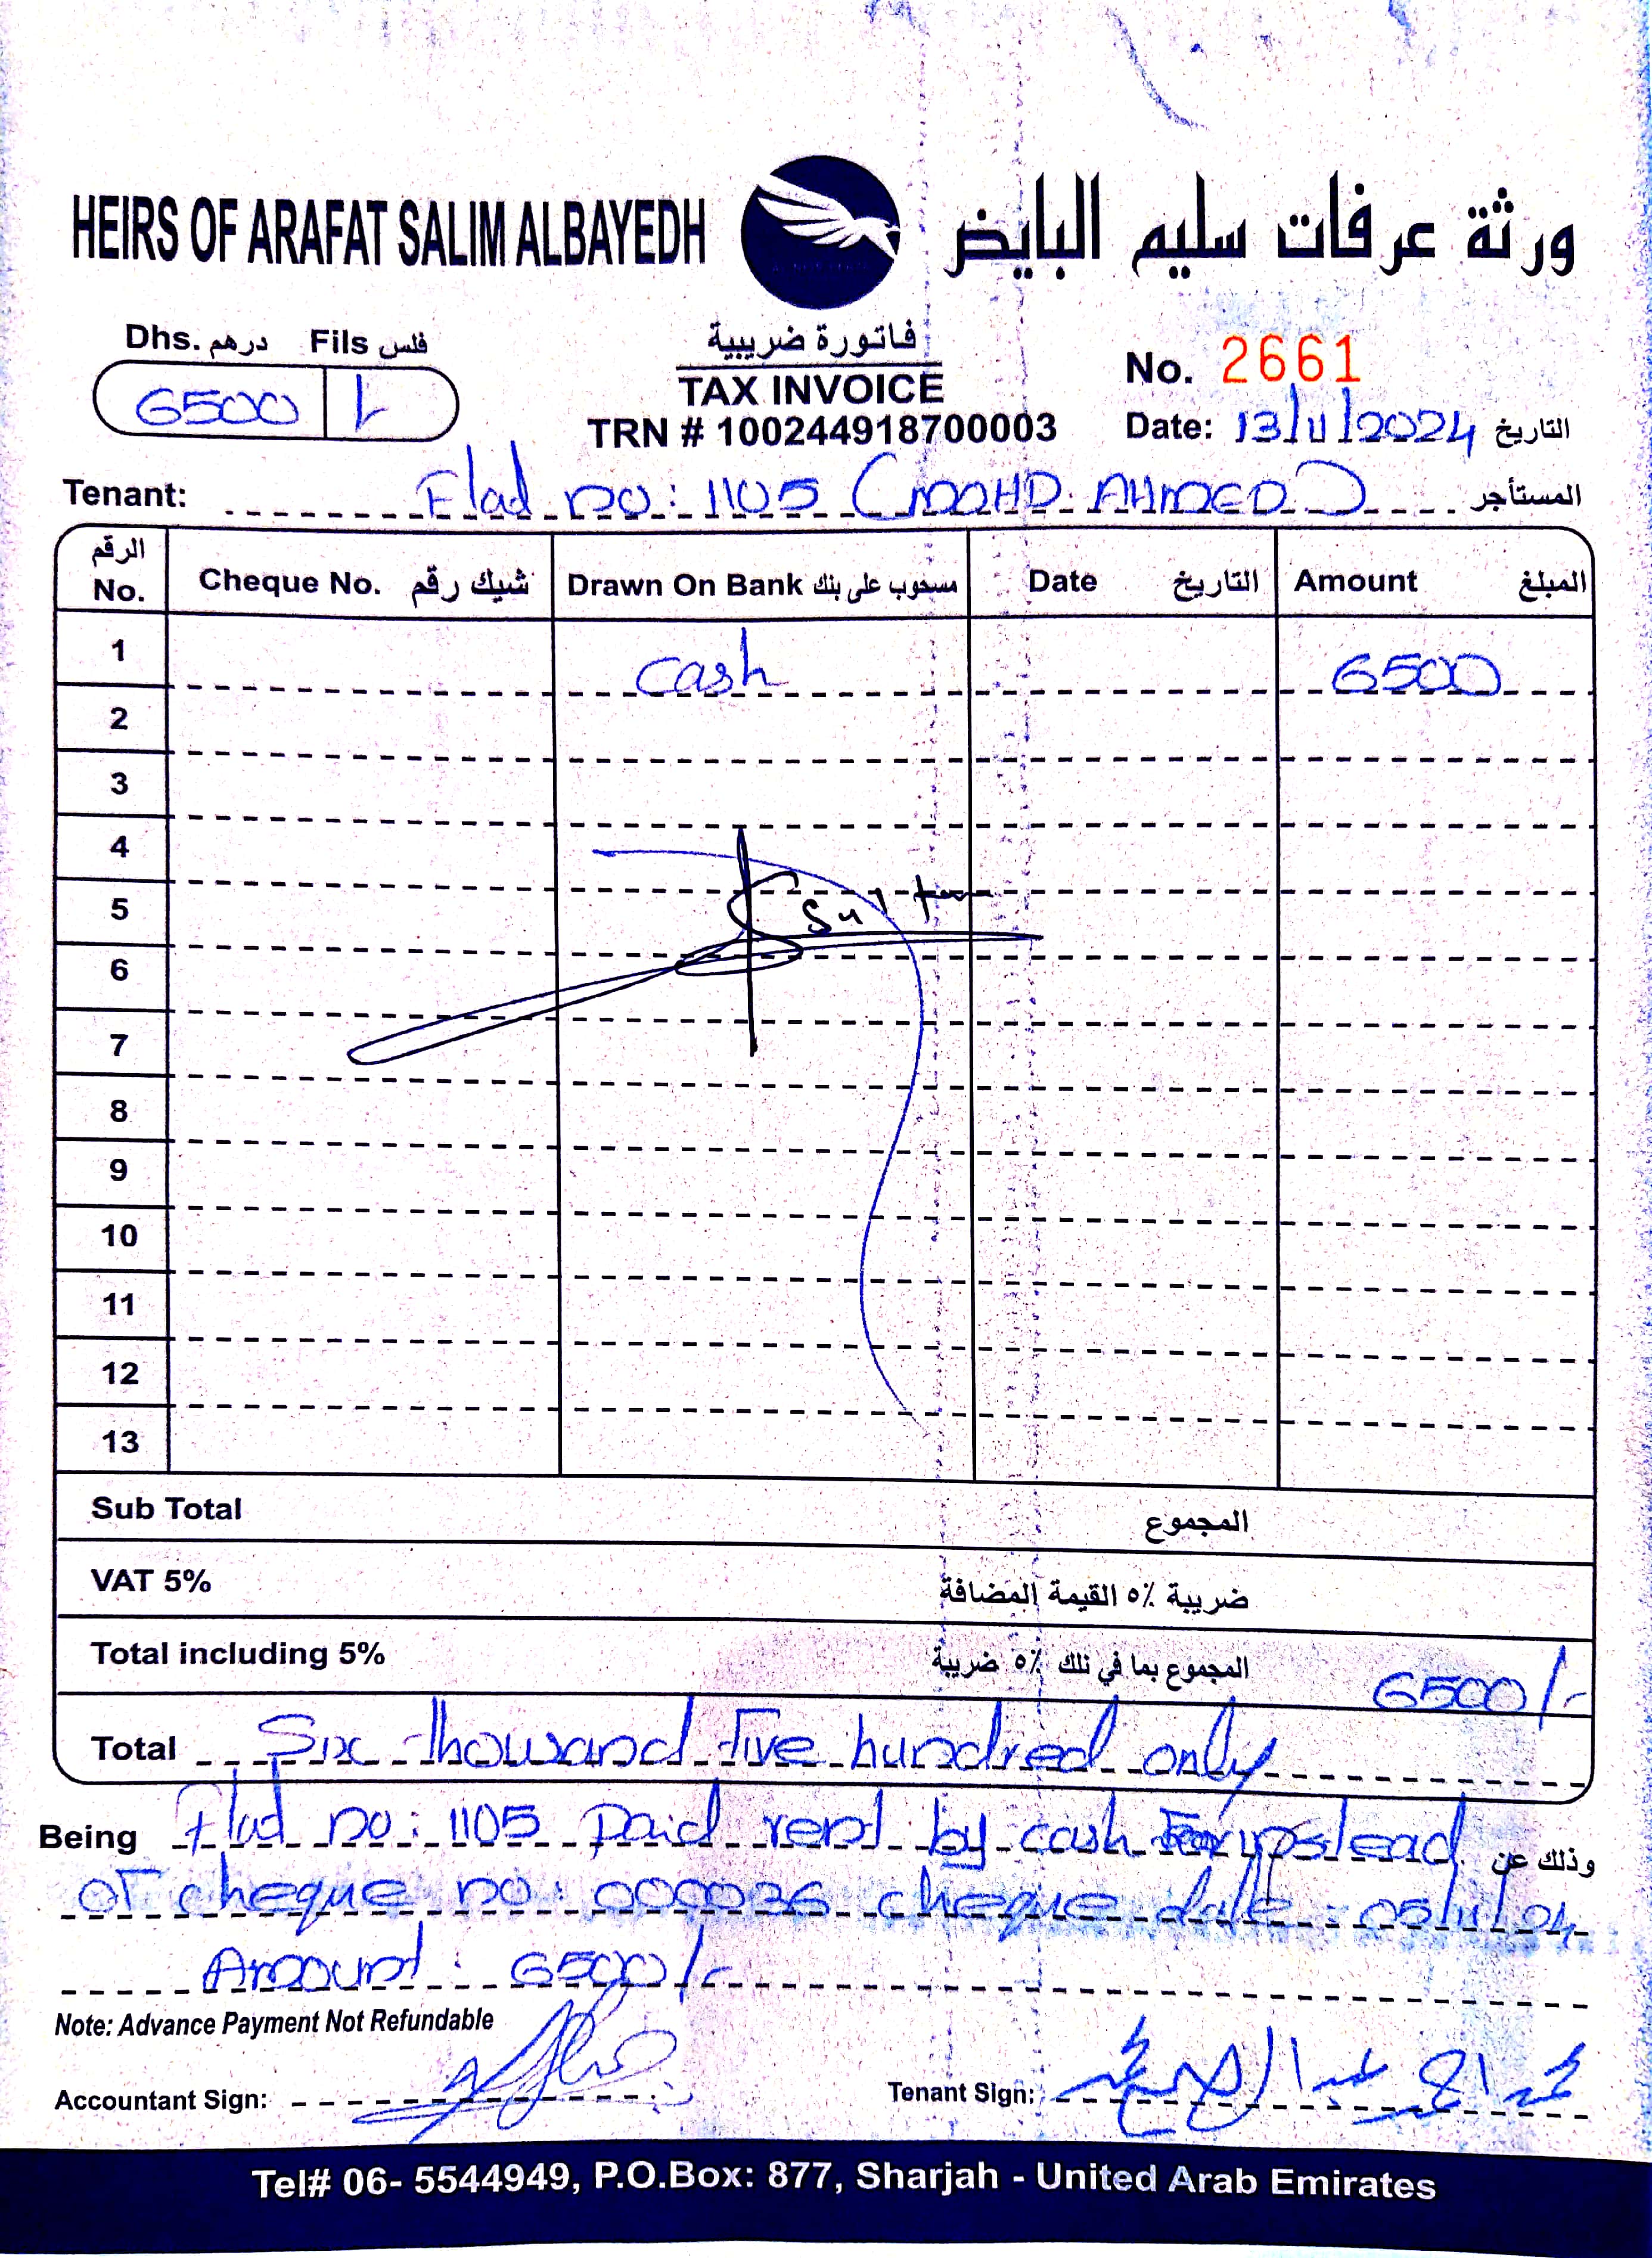 HEIRS OF ARAFAT SALIM ALBAYEDH ورثة عرفات سليم البايض
Dhs. درهم Fils فلس
6500 /-
فاتورة ضريبية
TAX INVOICE
TRN # 100244918700003
No. 2661
Date: 13/11/2024 التاريخ
Tenant: Flad no: 1105 (MOHD. AHMED) المستأجر
الرقم No. Cheque No. شيك رقم Drawn On Bank مسحوب على بنك Date التاريخ Amount المبلغ
1 cash 6500
2
3
4
5 Sultan
6
7
8
9
10
11
12
13
Sub Total المجموع
VAT 5% ضريبة ٥٪ القيمة المضافة
Total including 5% المجموع بما في تلك ٥٪ ضريبة 6500/-
Total Six thousand five hundred only
Being Flad no: 1105 Paid rend by cash وذلك عن
of cheque no: 000026 cheque date: 05/11/24
Amound: 6500/-
Note: Advance Payment Not Refundable
Accountant Sign: Tenant Sign:
Tel# 06- 5544949, P.O.Box: 877, Sharjah - United Arab Emirates